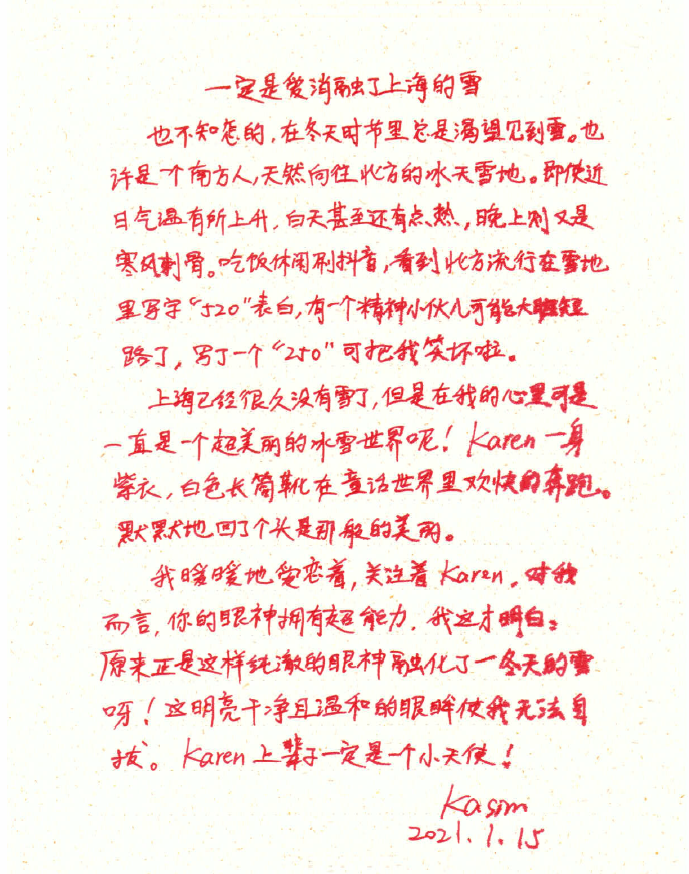 一定是爱消融了上海的雪
也不知怎的,在冬天时节里总是渴望见到雪。也
许是个南方人,天然向往北方的冰天雪地。即使近
日气温有所上升,白天甚至还有点热,晚上则又是
寒风刺骨。吃饭休闲刷抖音,看到北方流行在雪地
里写字“520”表白,有一个精神小伙儿可能大脑短
路了,写了一个“250”可把我笑坏啦。
上海已经很久没有雪了,但是在我的心里可是
一直是一个超美丽的冰雪世界呢!Karen一身
紫衣,白色长筒靴在童话世界里欢快的奔跑。
默默地回了个头是那般的美丽。
我暖暖地爱恋着,关注着Karen,对我
而言,你的眼神拥有超能力,我这才明白:
原来正是这样纯澈的眼神融化了一冬天的雪
呀!这明亮干净且温和的眼眸使我无法自
拔。Karen上辈子一定是一个小天使!
Kasim
2021.1.15